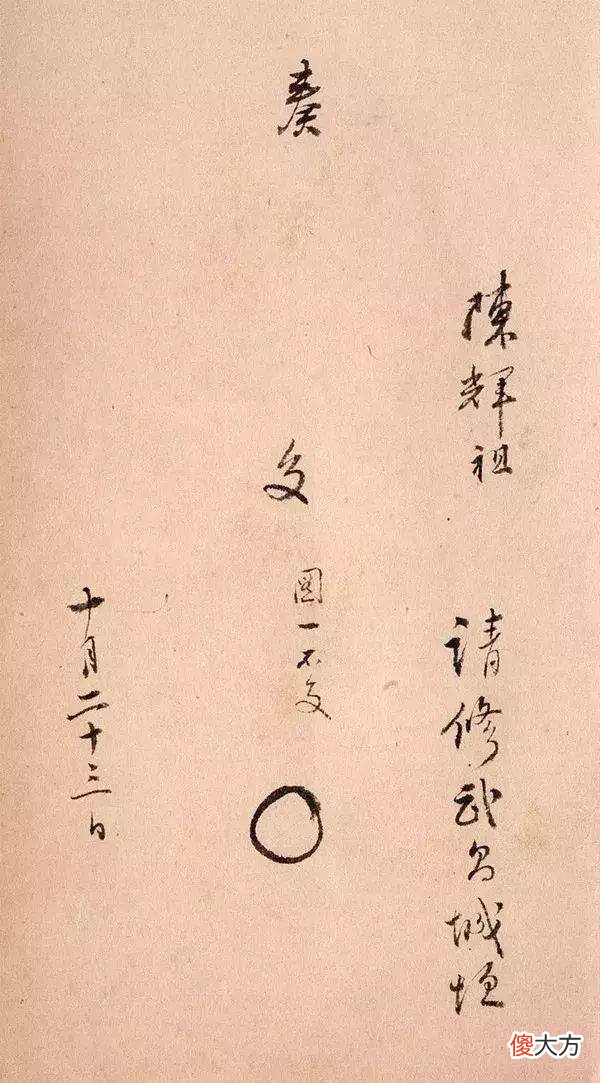 奏
陳輝祖
請修武昌城垣
交
圖一不交
十月二十三日
傻大方